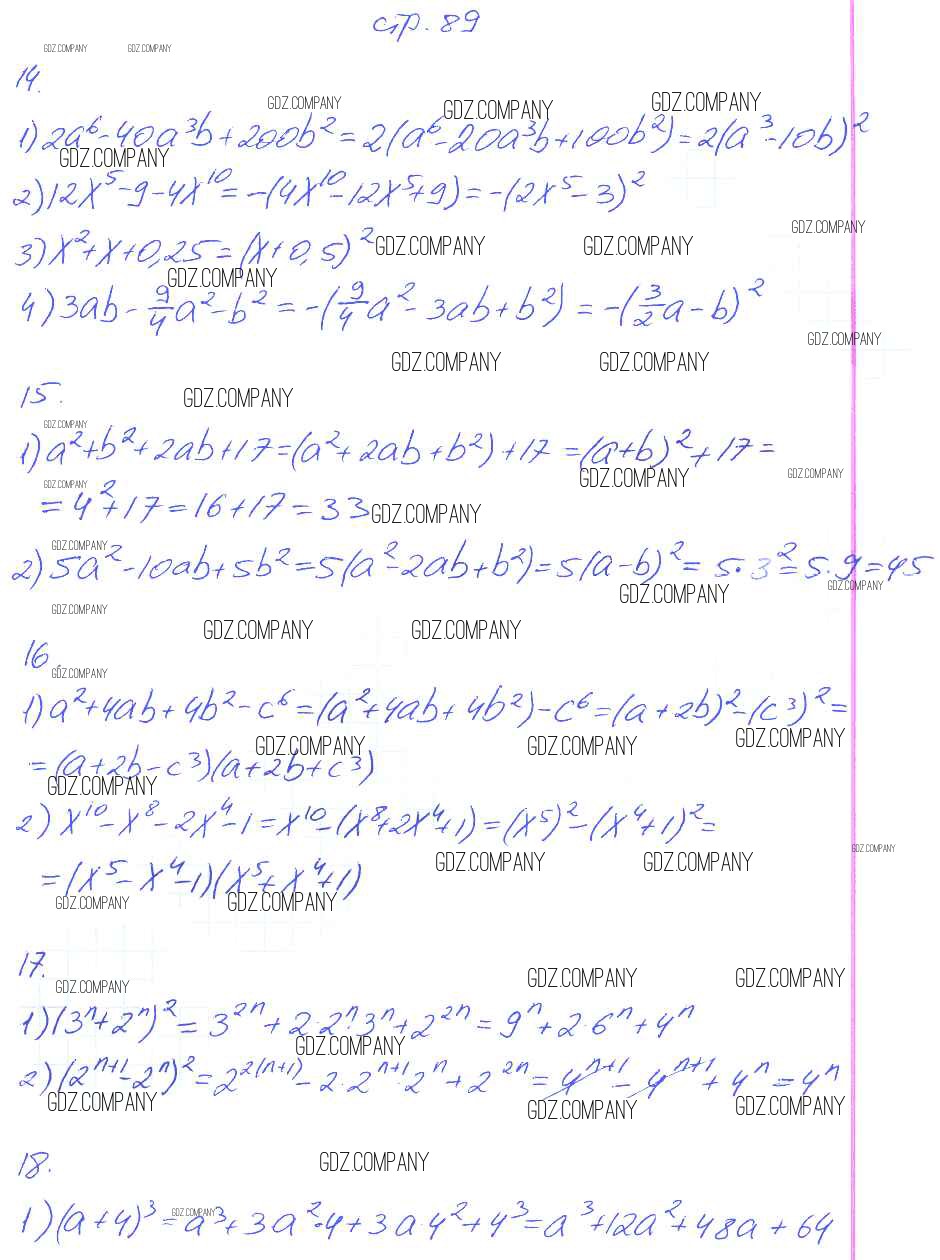 стр. 89
GDZ.COMPANY GDZ.COMPANY
14.
GDZ.COMPANY GDZ.COMPANY GDZ.COMPANY
1) 2a⁶-40a³b+200b²=2(a⁶-20a³b+100b²)=2(a³-10b)²
GDZ.COMPANY
2) 12x⁵-9-4x¹⁰=-(4x¹⁰-12x⁵+9)=-(2x⁵-3)²
GDZ.COMPANY
3) x²+x+0,25=(x+0,5)² GDZ.COMPANY GDZ.COMPANY
GDZ.COMPANY
4) 3ab-9/4a²-b²=-(9/4a²-3ab+b²)=-(3/2a-b)²
GDZ.COMPANY
GDZ.COMPANY GDZ.COMPANY
15. GDZ.COMPANY
GDZ.COMPANY
1) a²+b²+2ab+17=(a²+2ab+b²)+17=(a+b)²+17=
GDZ.COMPANY GDZ.COMPANY GDZ.COMPANY
=4²+17=16+17=33 GDZ.COMPANY
GDZ.COMPANY
2) 5a²-10ab+5b²=5(a²-2ab+b²)=5(a-b)²=5·3²=5·9=45
GDZ.COMPANY GDZ.COMPANY
GDZ.COMPANY
GDZ.COMPANY GDZ.COMPANY
16.
GDZ.COMPANY
1) a²+4ab+4b²-c⁶=(a²+4ab+4b²)-c⁶=(a+2b)²-(c³)²=
GDZ.COMPANY GDZ.COMPANY GDZ.COMPANY
=(a+2b-c³)(a+2b+c³)
GDZ.COMPANY
2) x¹⁰-x⁸-2x⁴-1=x¹⁰-(x⁸+2x⁴+1)=(x⁵)²-(x⁴+1)²=
GDZ.COMPANY GDZ.COMPANY GDZ.COMPANY
=(x⁵-x⁴-1)(x⁵+x⁴+1)
GDZ.COMPANY GDZ.COMPANY
17.
GDZ.COMPANY GDZ.COMPANY GDZ.COMPANY
1) (3ⁿ+2ⁿ)²=3²ⁿ+2·2ⁿ·3ⁿ+2²ⁿ=9ⁿ+2·6ⁿ+4ⁿ
GDZ.COMPANY
2) (2ⁿ⁺¹-2ⁿ)²=2²⁽ⁿ⁺¹⁾-2·2ⁿ⁺¹·2ⁿ+2²ⁿ=4ⁿ⁺¹-4ⁿ⁺¹+4ⁿ=4ⁿ
GDZ.COMPANY GDZ.COMPANY GDZ.COMPANY
18. GDZ.COMPANY
GDZ.COMPANY
1) (a+4)³=a³+3a²·4+3a·4²+4³=a³+12a²+48a+64